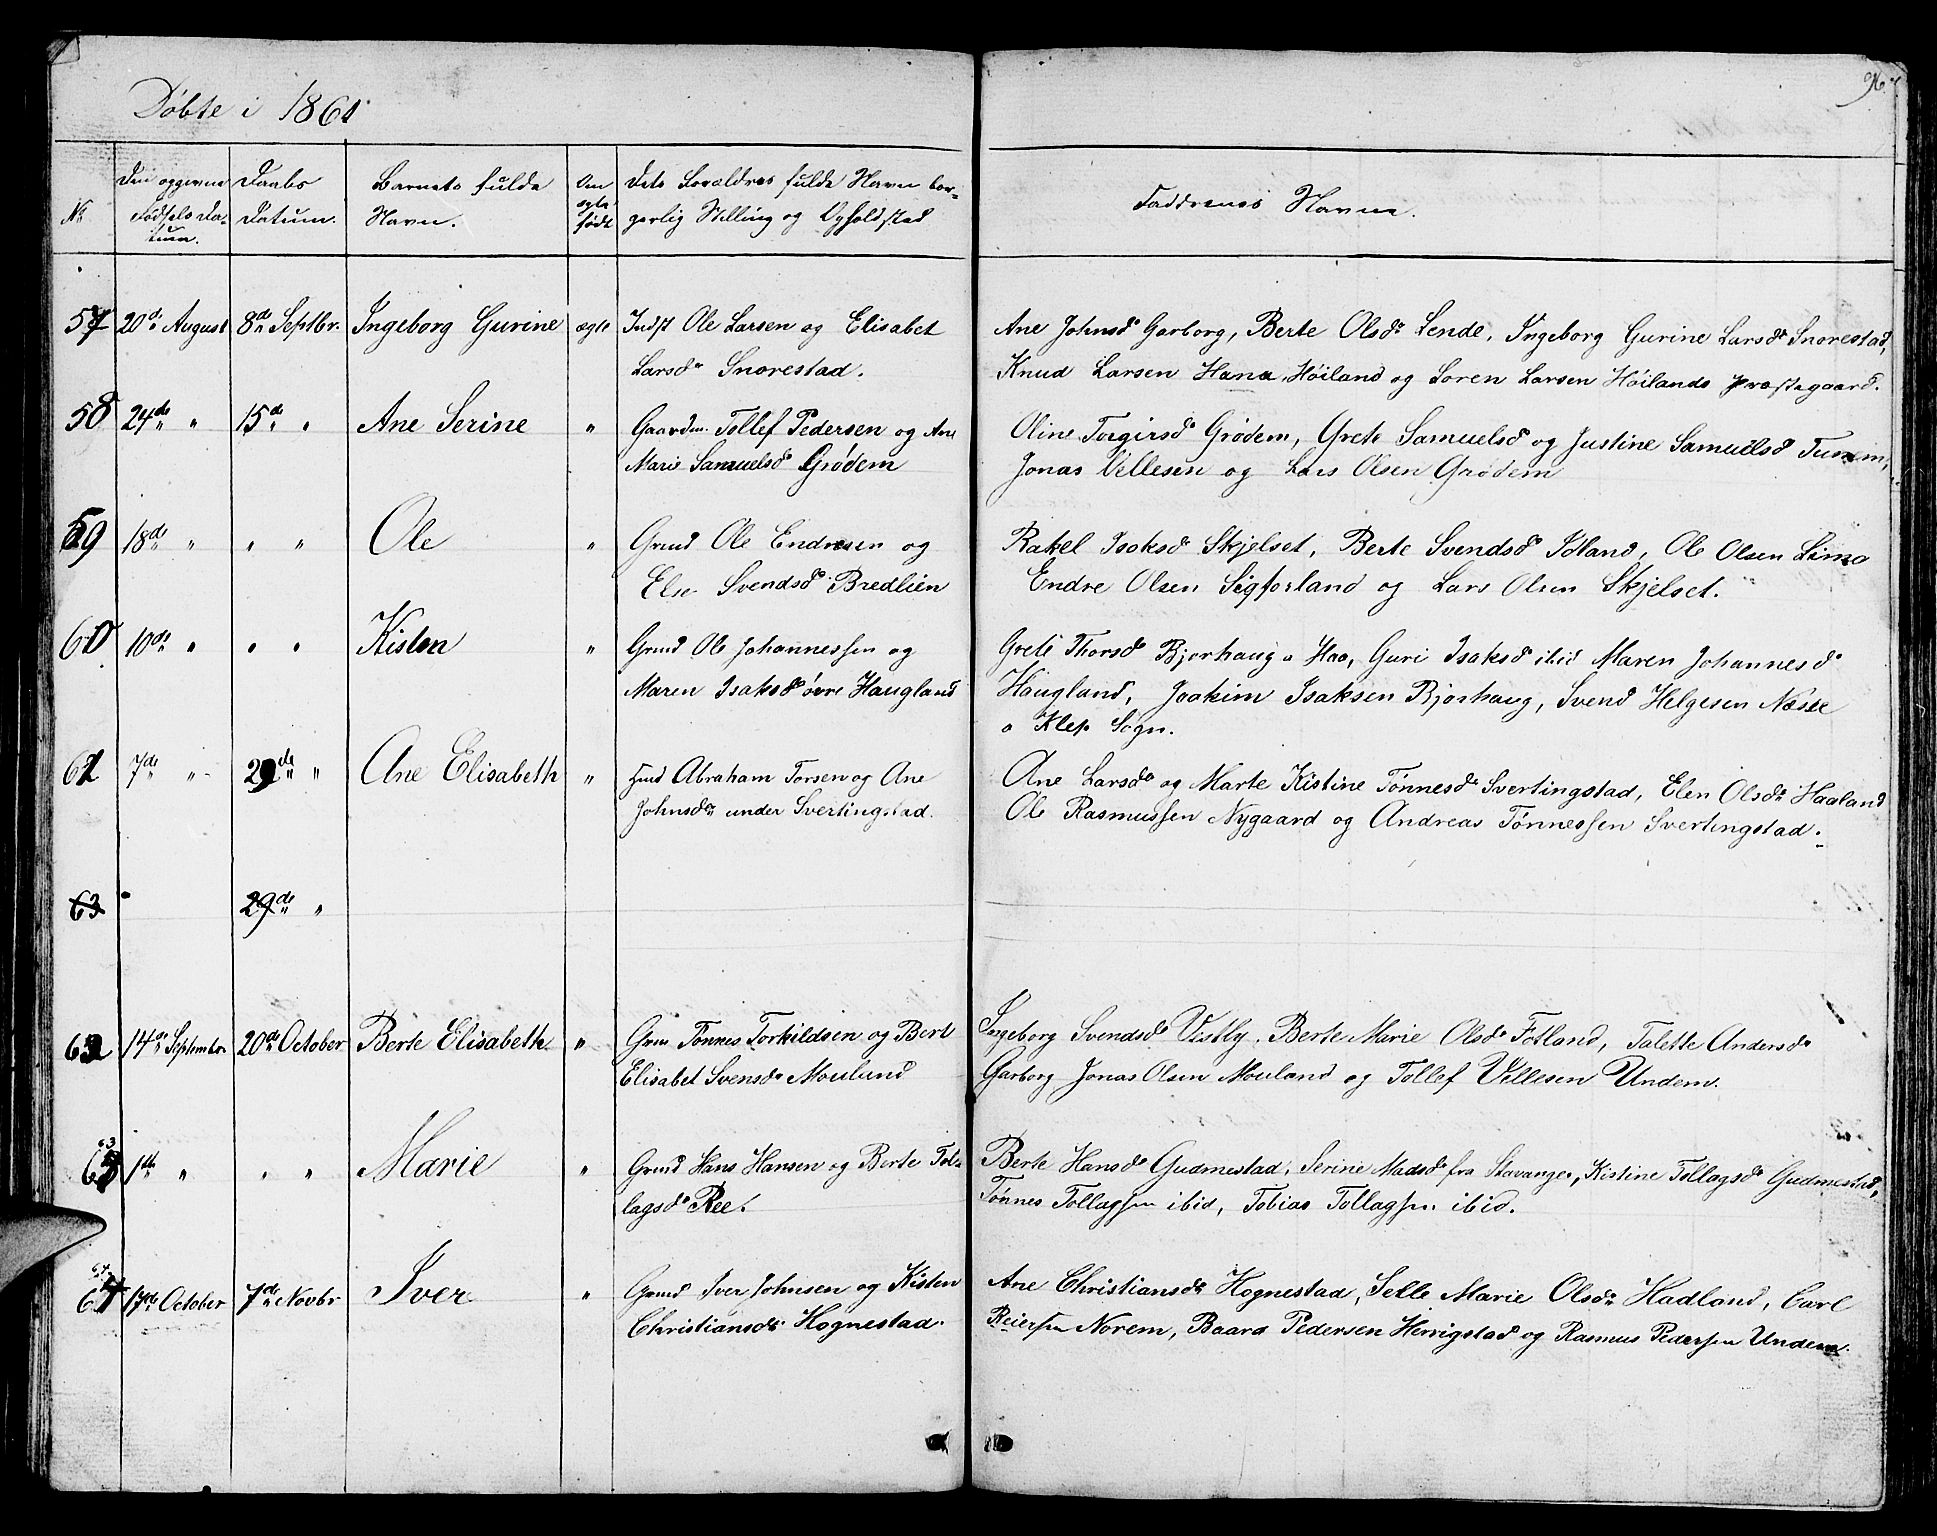 Døbte i 1861
96.
No
Den opgivne Fødsels Datum.
Daabs Datum.
Barnets fulde Navn.
Om ægte født
Dets Forældres fulde Navn borgerlig Stilling og Opholdsted
Faddrenes Navne.
57 20de August 8de Septbr. Ingeborg Gurine ægte Indst Ole Larsen og Elisabet
Larsdr Snorestad.
Ane Johnsdr Garborg, Berte Olsdr Lende, Ingeborg Gurine Larsdr Snorestad,
Knud Larsen Hana, Høiland og Soren Larsen Høilands Præstegaard.
58 24de " 15de " Ane Serine " Gaardm. Tollef Pedersen og Ane
Marie Samuelsdr Grødem
Oline Torgirsd Grødem, Grete Samuelsd og Justine Samuelsd
Jonas Vellesen og Lars Olsen Grødem
59 18de " " " Ole " Grmd Ole Endresen og
Else Svendsdr Bredlien
Rakel Isaksdr Skjelset, Berte Svendsdr Idland, Ole Olsen Lima
Endre Olsen Sigforland og Lars Olsen Skjelset.
60 10de " " " Kisten " Grmd Ole Johannessen og
Maren Isaksdr øvre Haugland
Grete Thorsdr Bjorhaug a Haa, Guri Isaksd ibid Maren Johannesd
Haugland, Joakim Isaksen Bjorhaug, Svend Helgesen Næsse
a Klep Sogn.
61 7de " 29de " Ane Elisabeth " Hmd Abraham Torsen og Ane
Johnsdr under Svertingstad.
Ane Larsdr og Marte Kistine Tønnesdr Svertingstad, Elen Olsdr Haaland
Ole Rasmussen Nygaard og Andreas Tønnessen Svertingstad.
63 29de "
62 14de Septembr 20de October Berte Elisabeth " Grm Tønnes Torkildsen og Bert
Elisabet Svensdr Mouland
Ingeborg Svendsdr Vestly, Berte Marie Olsdr Fotland, Talette Andersdr
Garborg Jonas Olsen Mouland og Tollef Vellesen Undem.
63 1ste " " " Marie " Grmd Hans Hansen og Berte Tol-
lagsdr Ree.
Berte Hansdr Gudmestad, Serine Madsdr fra Stavanger, Kistine Tollagsdr Gudmestad,
Tønnes Tollagsen ibid, Tobias Tollagsen ibid.
64 17de October 7de Novbr Iver " Grmd Iver Johnsen og Kisten
Christiansdr Hognestad.
Ane Christiansdr Hognestad, Selle Marie Olsdr Hadland, Carl
Reiersen Norem, Baard Pedersen Herrigstad og Rasmus Pedersen Undem.